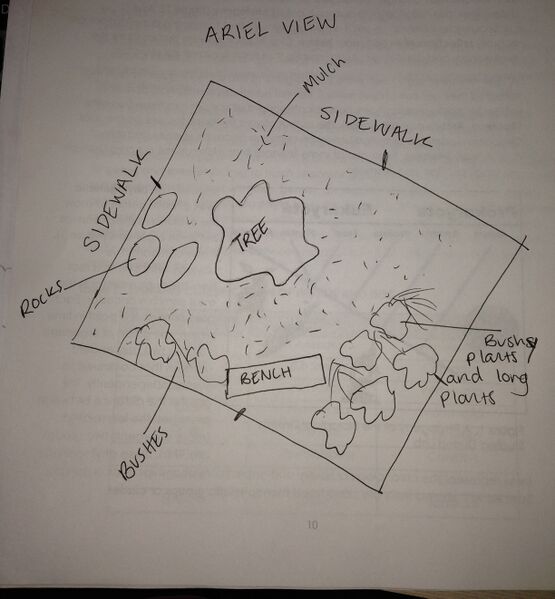 ARIEL VIEW
MULCH
SIDEWALK
SIDEWALK
TREE
ROCKS
BENCH
Bushy
plants
and long
plants
BUSHES
10